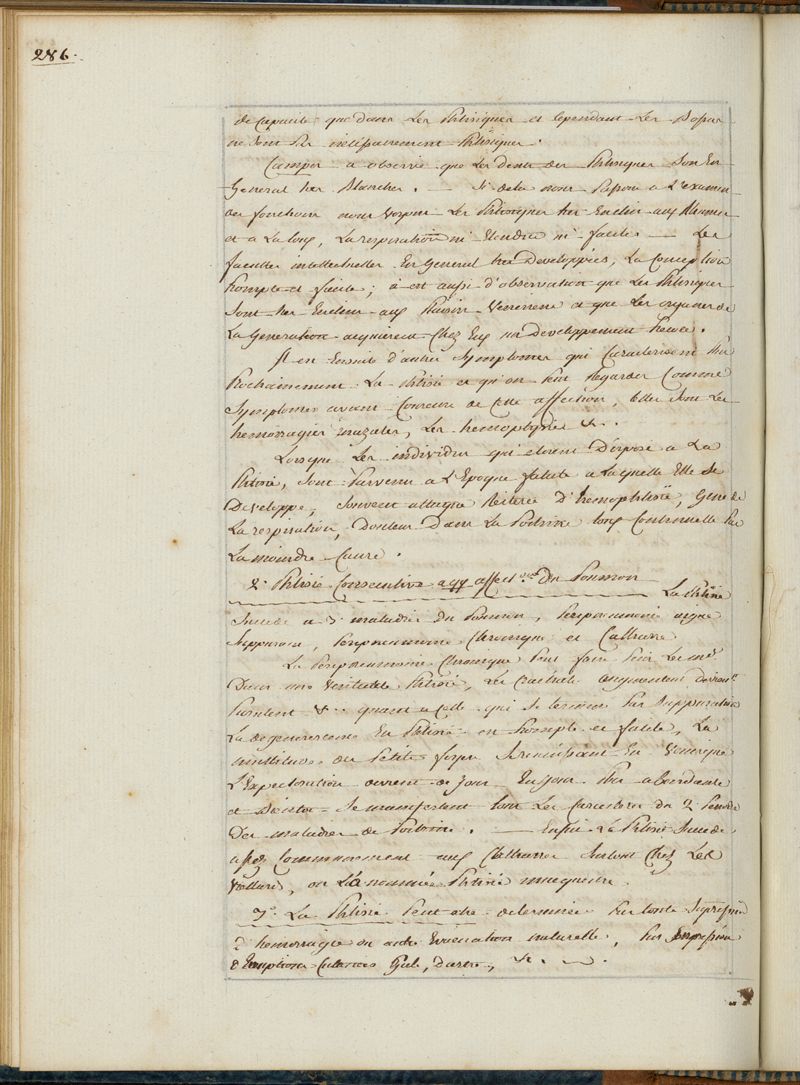 286.
de Capacité que dans les Phtisiques et cependant les Bossus
ne sont pas nécessairement Phtisiques.
Camper a observé que les dents des Phtisiques sont en
General tres Blanches. — Si de la nous passons a l'examen
des fonctions nous voyons les Phtisiques tres enclin aux Rhumes
et a la toux, la respiration ni etendue ni facile — Les
facultés intellectuelles en general tres developpées, la Conception
prompte et facile; c'est aussi d'observation que les Phtisiques
sont tres enclins aux plaisirs veneriens et que les organes de
la Generation acquierent chez eux un developpement
Il en ensuite d'autres symptomes qui caracterisent plus
prochainement la Phtisie et qu'on peut regarder comme
symptomes avant coureurs de cette affection, elles sont les
hemorragies nazales, les hemoptysies &.
Lorsque les individus qui etoient disposé a la
Phtisie, sont parvenu a l'Epoque fatale a laquelle elle se
developpe, souvent attaque Réiterée d'hemophtisie, Gene de
la respiration, Douleur dans la Poitrine toux continuelle par
la moindre cause.
2° Phtisie Consecutive aux affect.ons du Poumon — La Phtisie
succede a 3 maladies du Poumon, Peripneumonie aigue
suppurée, Peripneumonie Chronique et Catharre
La Peripneumonie Chronique peut faire perir les m.des
dans une veritable Phtisie, les Crachats augmentent deviennt
purulent &. quant a celle qui se termine par suppuration
la degenerescence en Phtisie est prompte et facile, la
multitude de petits foyers se reunissant en Vomique
l'Expectoration devient de jour en jour plus abondante
et se manifestent tous les caracteres du 2e Periode
des maladies de Poitrine. — Enfin la Phtisie succede
assez communement aux Catharres surtout chez les
vieillards, on l'a nommée Phtisie muqueuse.
3° La Phtisie peut etre determinée par toute supression
d'hemorragie ou autre Evacuation naturelle, par supression
d'Eruptions Cutanées Gale, dartre, &.